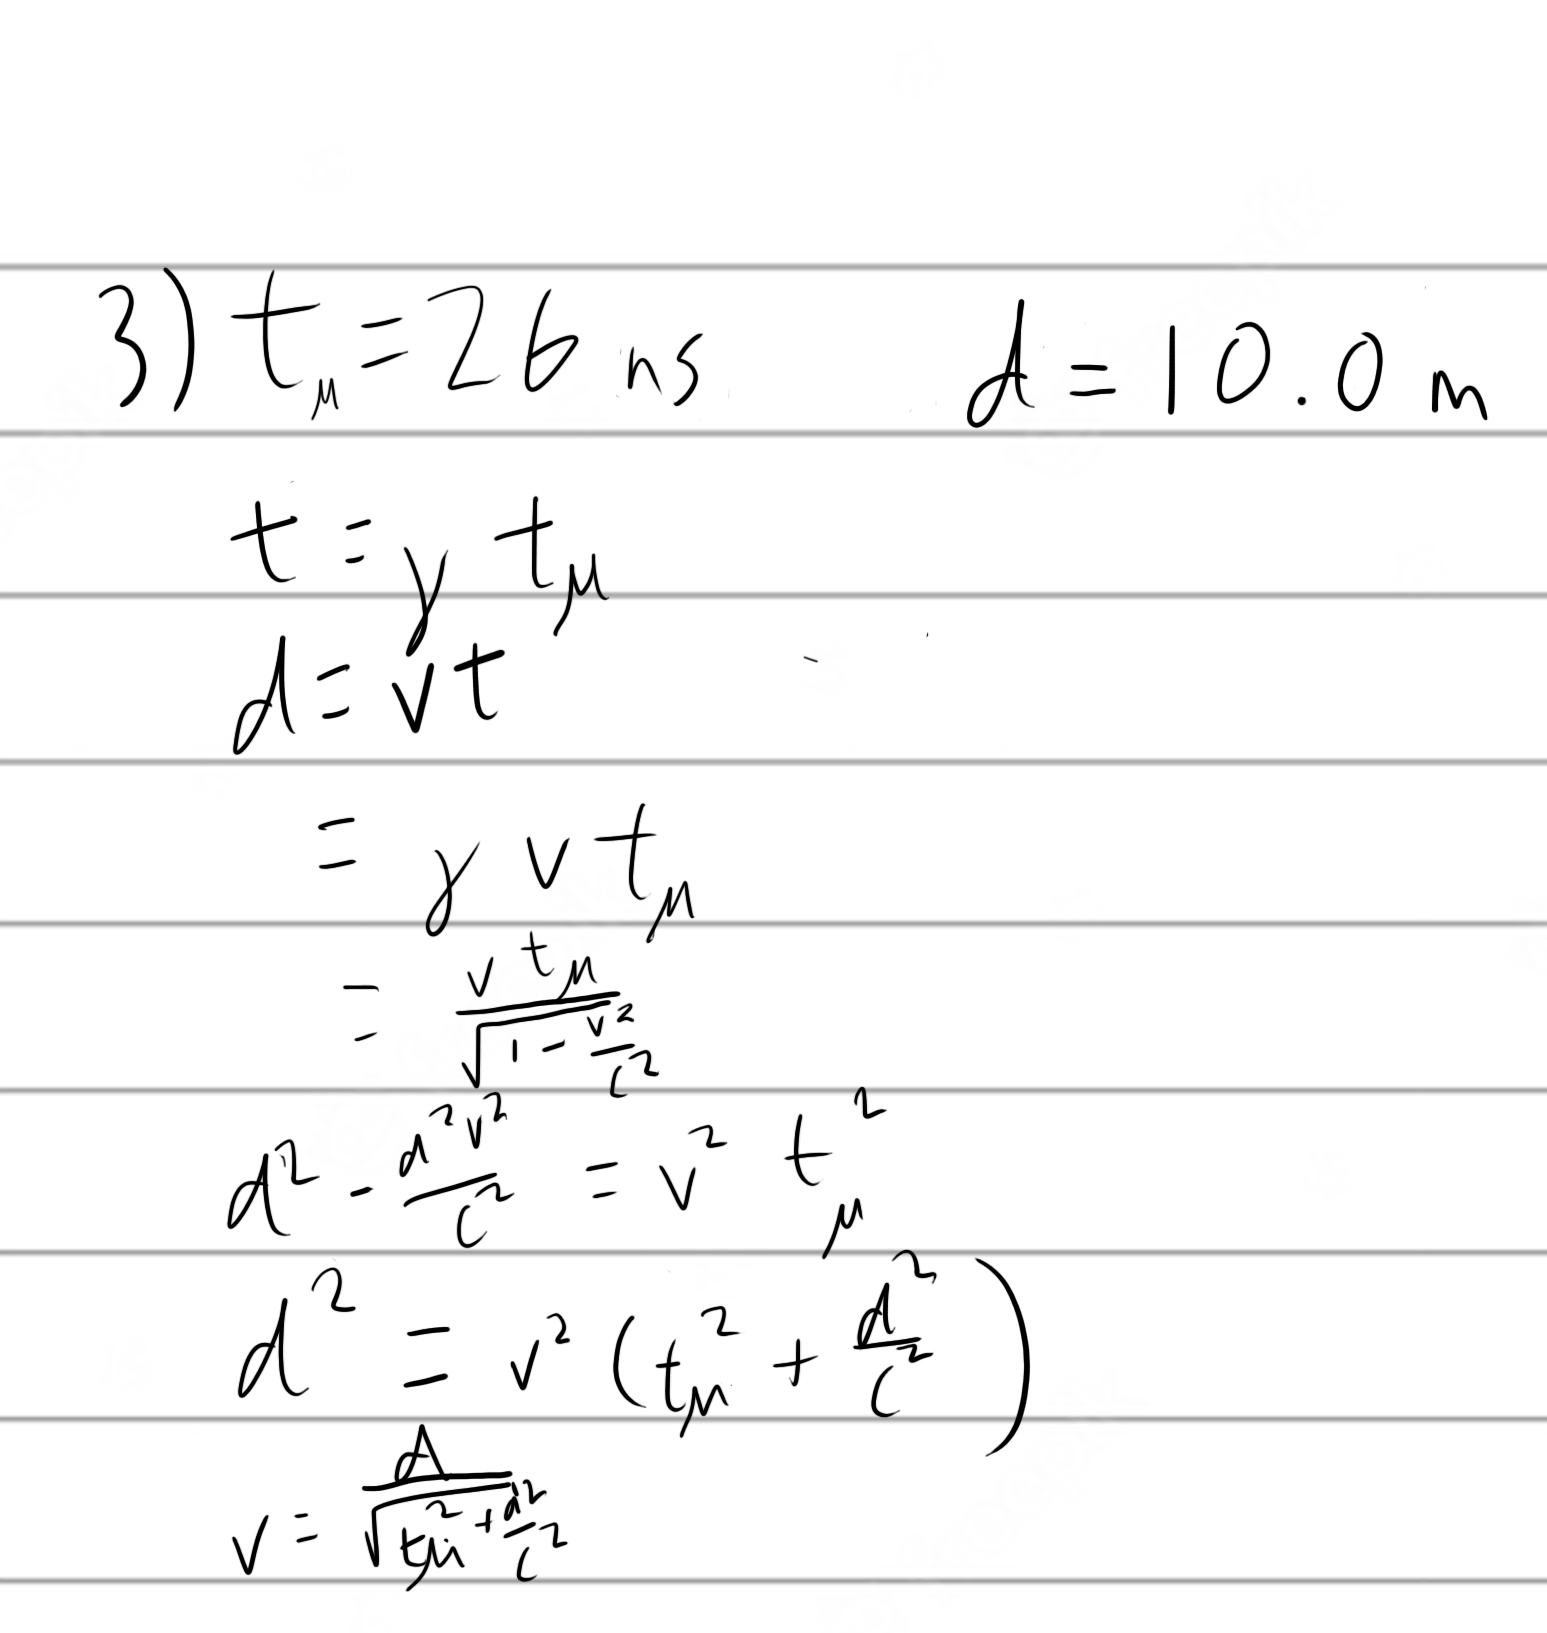 3) t_μ = 26 ns d = 10.0 m
t = γ t_μ
d = vt
= γ v t_μ
= v t_μ / √(1 - v²/c²)
d² - d²v²/c² = v² t_μ²
d² = v² (t_μ² + d²/c²)
v = d / √(t_μ² + d²/c²)